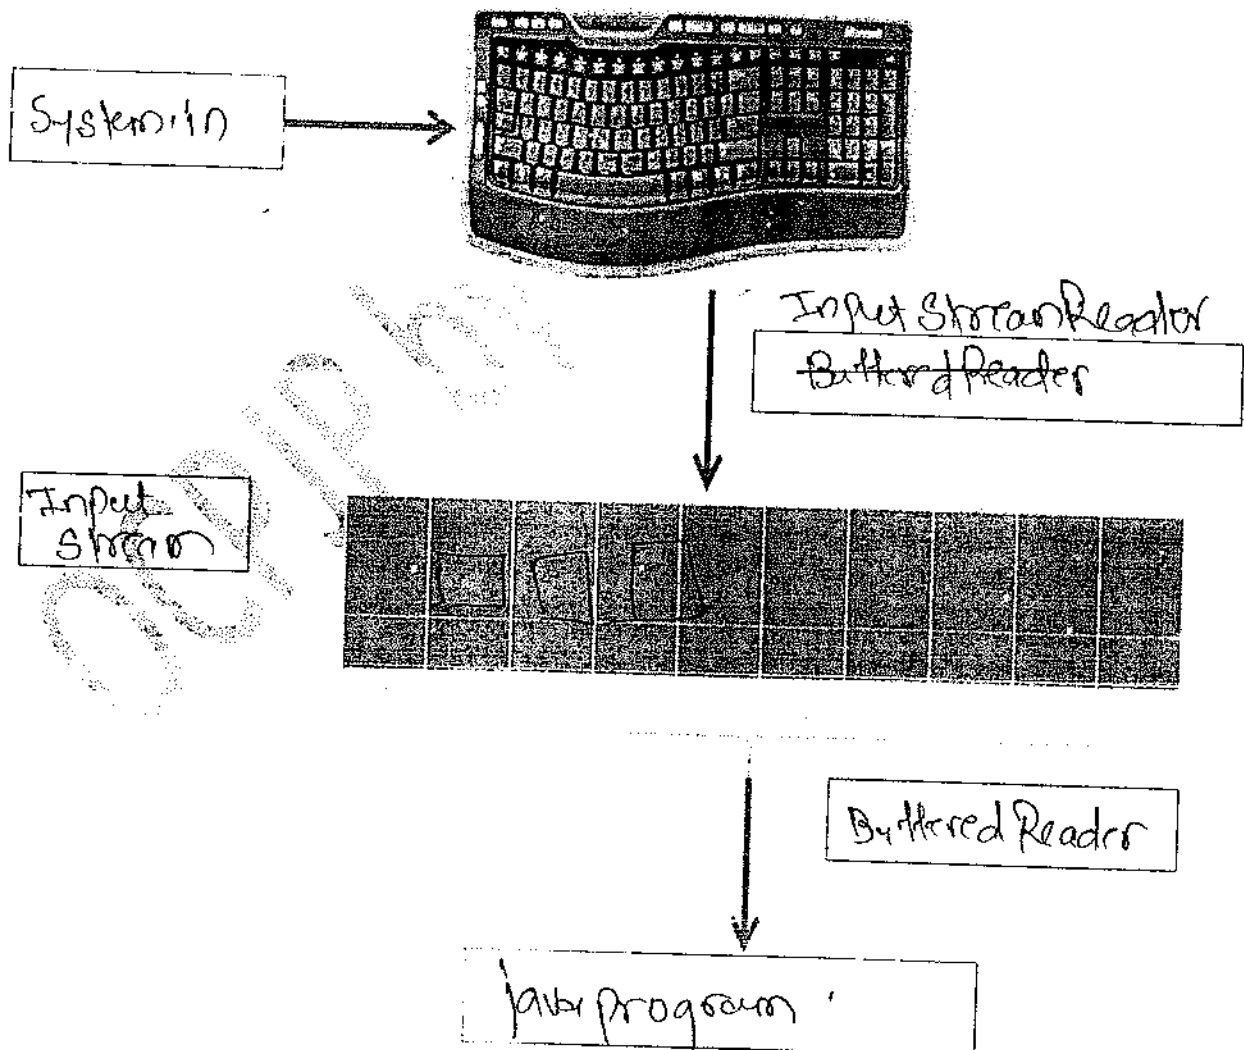 System.in
InputStreamReader
BufferedReader
Input
Stream
BufferedReader
java program